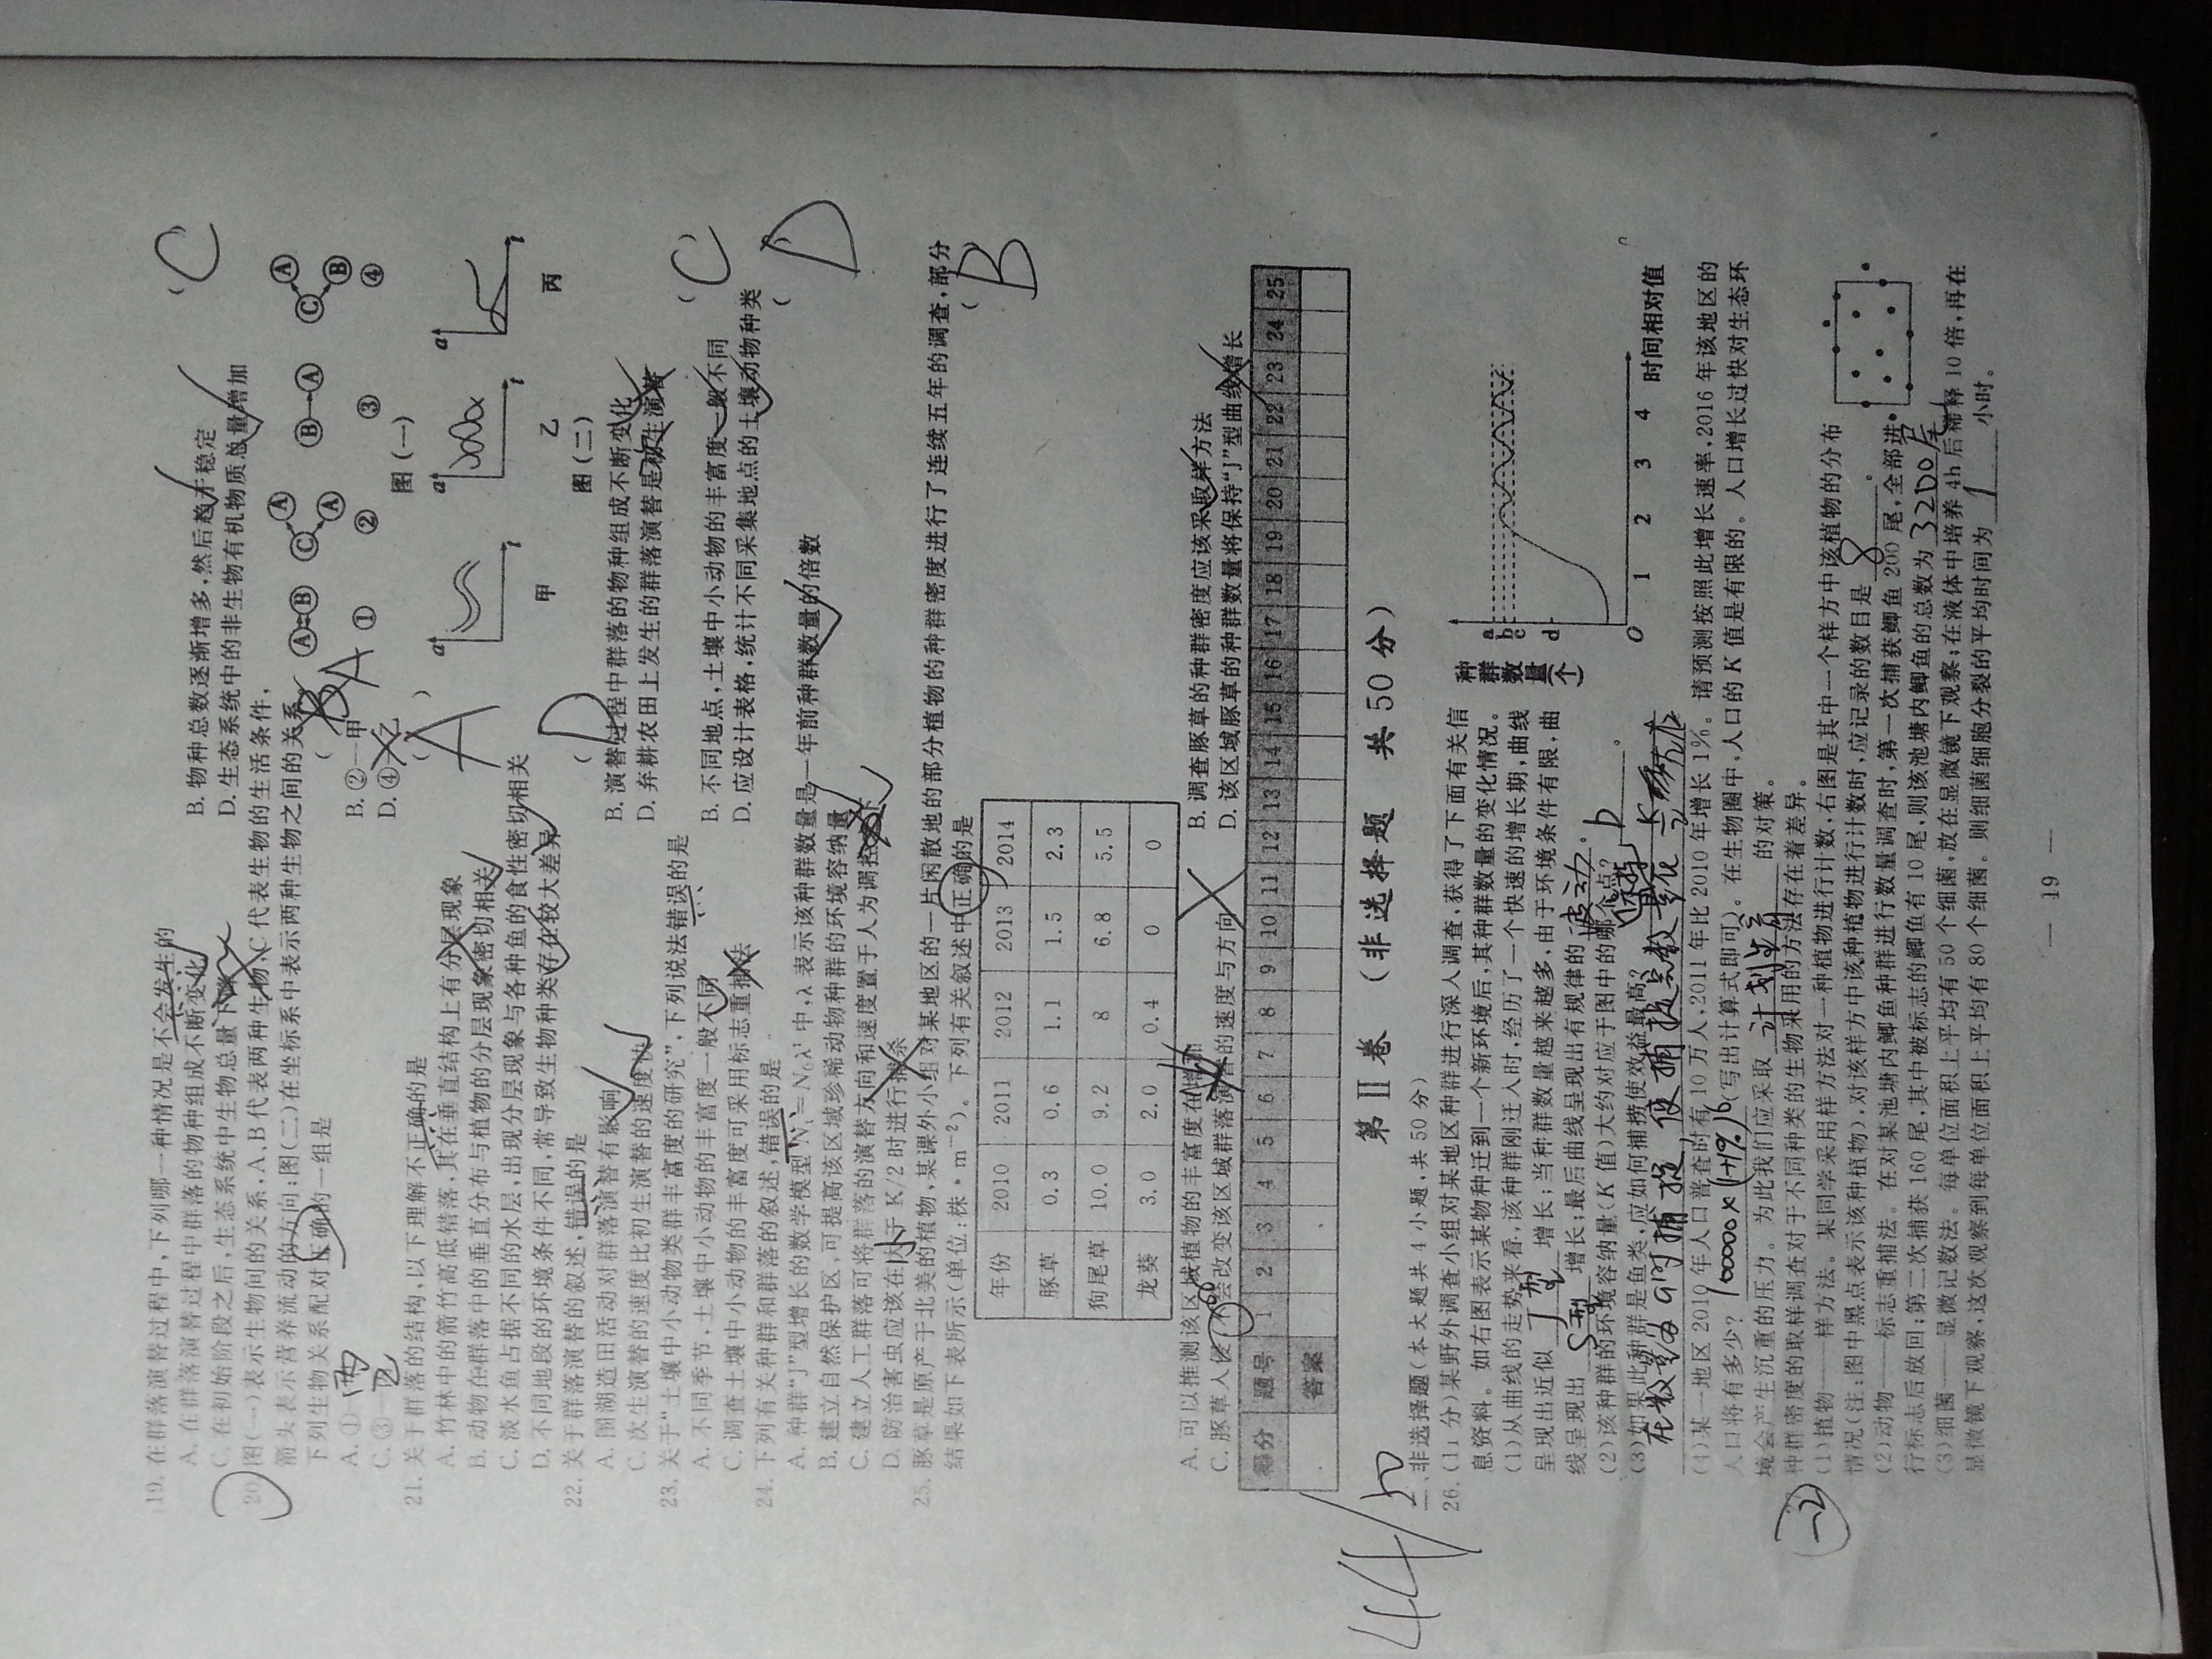 19. 在群落演替过程中,下列哪一种情况是不会发生的 ( C )
A. 在群落演替过程中群落的物种组成不断变化
B. 物种总数逐渐增多,然后趋于稳定
C. 在初始阶段之后,生态系统中生物总量下降
D. 生态系统中的非生物有机物质总量增加
20. 图(一)表示生物间的关系,A、B代表两种生物,C代表生物的生活条件,
箭头表示营养流动的方向;图(二)在坐标系中表示两种生物之间的关系。
下列生物关系配对正确的一组是 ( B A
A. ①— 丙
B. ②—甲
C. ③—乙
D. ④—乙
A B C A A B A C A B
① ② ③ ④
图(一)
21. 关于群落的结构,以下理解不正确的是 ( A )
A. 竹林中的箭竹高低错落,其在垂直结构上有分层现象
B. 动物在群落中的垂直分布与植物的分层现象密切相关
C. 淡水鱼占据不同的水层,出现分层现象与各种鱼的食性密切相关
D. 不同地段的环境条件不同,常导致生物种类存在较大差异
a t a t a t
甲 乙 丙
图(二)
22. 关于群落演替的叙述,错误的是 ( D
A. 围湖造田活动对群落演替有影响
B. 演替过程中群落的物种组成不断变化
C. 次生演替的速度比初生演替的速度快
D. 弃耕农田上发生的群落演替是初生演替
次
23. 关于“土壤中小动物类群丰富度的研究”,下列说法错误的是 ( C )
A. 不同季节,土壤中小动物的丰富度一般不同
B. 不同地点,土壤中小动物的丰富度一般不同
C. 调查土壤中小动物的丰富度可采用标志重捕法
D. 应设计表格,统计不同采集地点的土壤动物种类
24. 下列有关种群和群落的叙述,错误的是 ( D )
A. 种群“J”型增长的数学模型 Nt=N0λt 中,λ 表示该种群数量是一年前种群数量的倍数
B. 建立自然保护区,可提高该区域珍稀动物种群的环境容纳量
C. 建立人工群落可将群落的演替方向和速度置于人为调控之下
D. 防治害虫应该在大于 K/2 时进行捕杀
小
25. 豚草是原产于北美的植物,某课外小组对某地区的一片闲散地的部分植物的种群密度进行了连续五年的调查,部分
结果如下表所示(单位:株·m−2)。下列有关叙述中正确的是 ( B )
年份 2010 2011 2012 2013 2014
豚草 0.3 0.6 1.1 1.5 2.3
狗尾草 10.0 9.2 8 6.8 5.5
龙葵 3.0 2.0 0.4 0 0
A. 可以推测该区域植物的丰富度在增加
B. 调查豚草的种群密度应该采取样方法
C. 豚草入侵,不会改变该区域群落演替的速度与方向
D. 该区域豚草的种群数量将保持“J”型曲线增长
得分 题号 1 2 3 4 5 6 7 8 9 10 11 12 13 14 15 16 17 18 19 20 21 22 23 24 25
答案
44/50
第Ⅱ卷 (非选择题 共50分)
二、非选择题(本大题共4小题,共50分)
26. (11分)某野外调查小组对某地区种群进行深入调查,获得了下面有关信
息资料。如右图表示某物种迁到一个新环境后,其种群数量的变化情况。
(1)从曲线的走势来看,该种群刚迁入时,经历了一个快速的增长期,曲线
呈现出近似 J型 增长;当种群数量越来越多,由于环境条件有限,曲
线呈现出 S型 增长;最后曲线呈现出有规律的 波动 。
(2)该种群的环境容纳量(K值)大约对应于图中的哪个点? b 。
(3)如果此种群是鱼类,应如何捕捞使效益最高? 保持
在数量为a时捕捉,使捕捉完数量在 K/2 左右
种群数量(个)
a
b
c
d
O 1 2 3 4 时间相对值
(4)某一地区2010年人口普查时有10万人,2011年比2010年增长1%。请预测按照此增长速率,2016年该地区的
人口将有多少? 100000×(1+1%)6 (写出计算式即可)。在生物圈中,人口的K值是有限的。人口增长过快对生态环
境会产生沉重的压力。为此我们应采取 计划生育 的对策。
-2
27. 种群密度的取样调查对于不同种类的生物采用的方法存在着差异。
(1)植物——样方法。某同学采用样方法对一种植物进行计数,右图是其中一个样方中该植物的分布
情况(注:图中黑点表示该种植物),对该样方中该种植物进行计数时,应记录的数目是 8 。
(2)动物——标志重捕法。在对某池塘内鲫鱼种群进行数量调查时,第一次捕获鲫鱼200尾,全部进
行标志后放回;第二次捕获160尾,其中被标志的鲫鱼有10尾,则该池塘内鲫鱼的总数为 3200尾
(3)细菌——显微记数法。每单位面积上平均有50个细菌,放在显微镜下观察;在液体中培养4h后稀释10倍,再在
显微镜下观察,这次观察到每单位面积上平均有80个细菌。则细菌细胞分裂的平均时间为 1 小时。
— 19 —